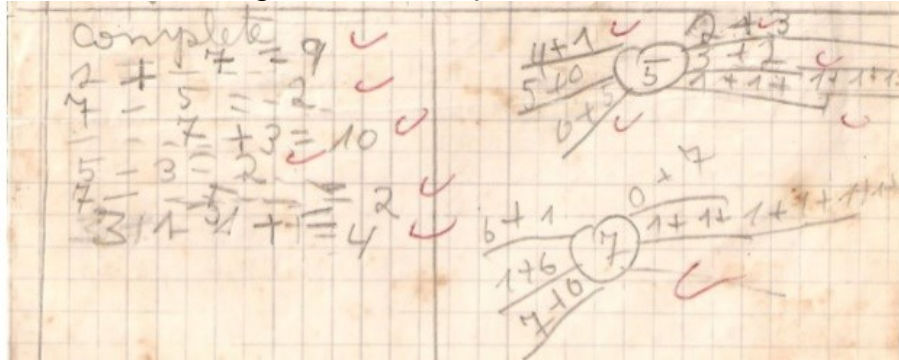 complete
2 + 7 = 9
7 - 5 = 2
7 + 3 = 10
5 - 3 = 2
7 - 5 = 2
3 + 1 = 4
4+1
5+0
0+5
5
2+3
3+2
1+1+1+1+1
6+1
1+6
7+0
7
0+7
1+1+1+1+1+1+